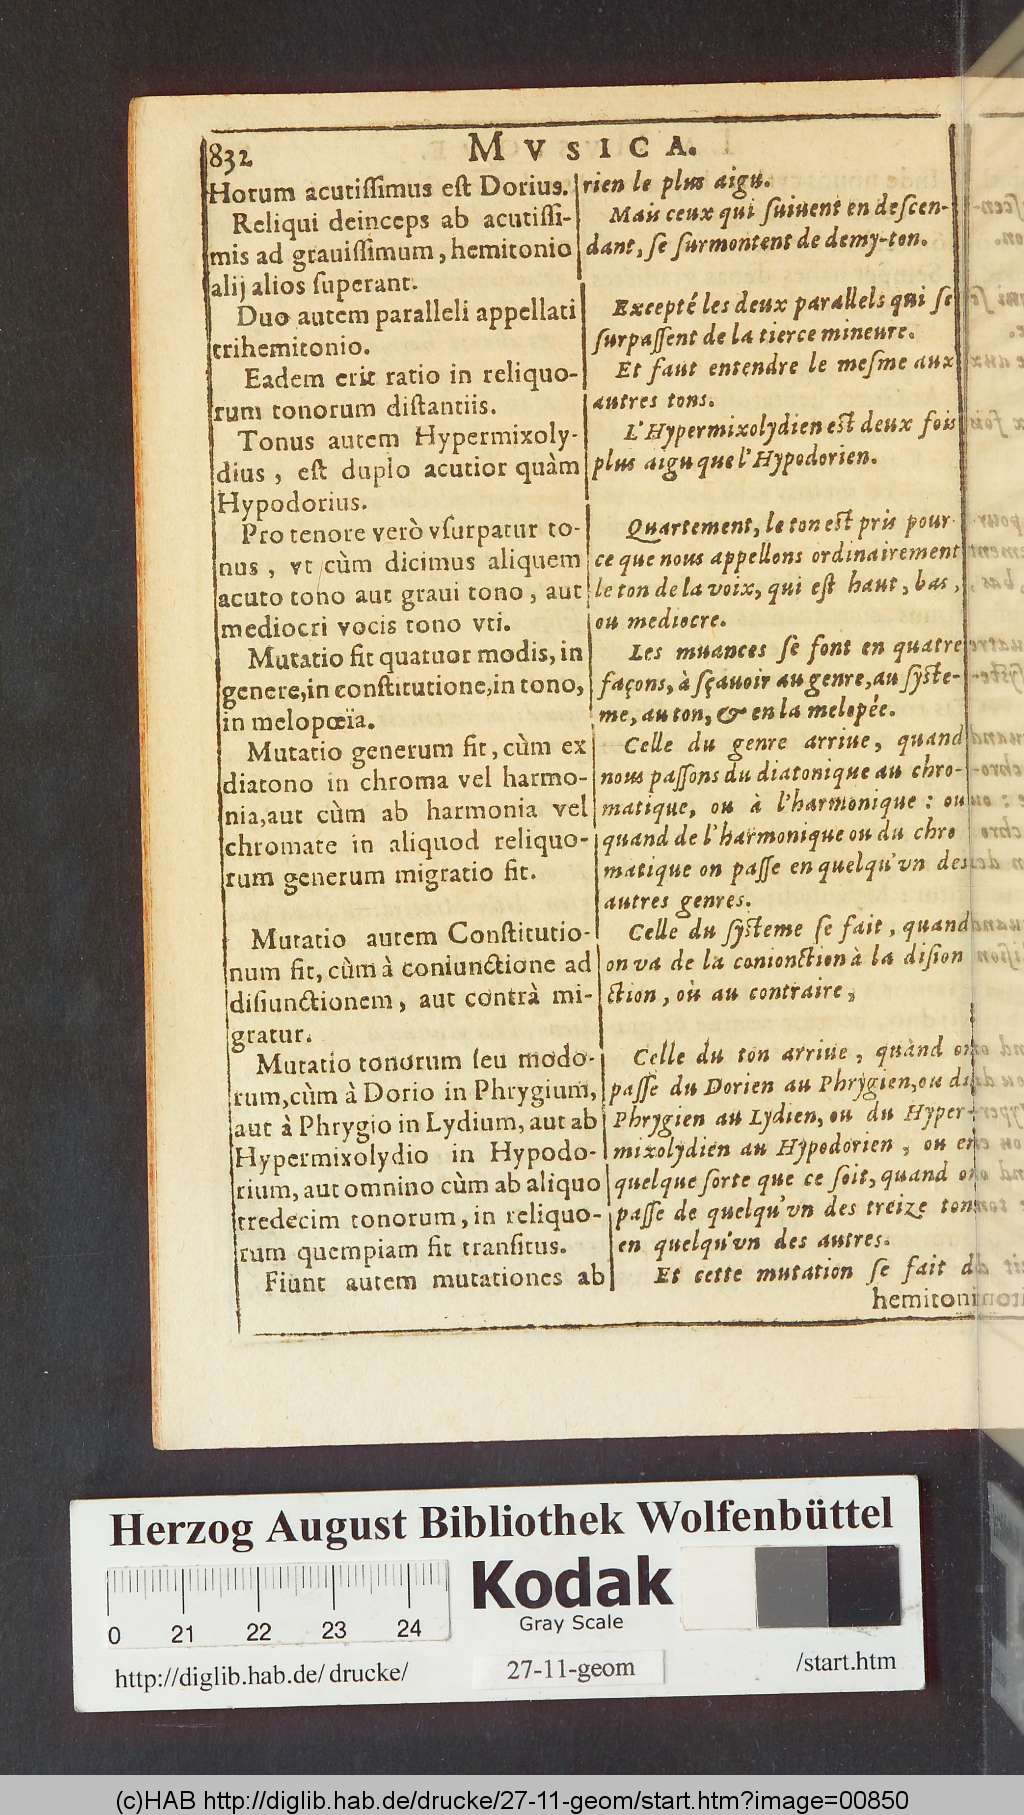 832
MVSICA.
Horum acutissimus est Dorius.
Reliqui deinceps ab acutissi-
mis ad grauissimum, hemitonio
alij alios superant.
Duo autem paralleli appellati
trihemitonio.
Eadem erit ratio in reliquo-
rum tonorum distantiis.
Tonus autem Hypermixoly-
dius, est duplo acutior quàm
Hypodorius.
Pro tenore verò vsurpatur to-
nus, vt cùm dicimus aliquem
acuto tono aut graui tono, aut
mediocri vocis tono vti.
Mutatio fit quatuor modis, in
genere, in constitutione, in tono,
in melopœïa.
Mutatio generum fit, cùm ex
diatono in chroma vel harmo-
nia, aut cùm ab harmonia vel
chromate in aliquod reliquo-
rum generum migratio fit.
Mutatio autem Constitutio-
num fit, cùm à coniunctione ad
disiunctionem, aut contrà mi-
gratur.
Mutatio tonorum seu modo-
rum, cùm à Dorio in Phrygium,
aut à Phrygio in Lydium, aut ab
Hypermixolydio in Hypodo-
rium, aut omnino cùm ab aliquo
tredecim tonorum, in reliquo-
rum quempiam fit transitus.
Fiunt autem mutationes ab
rien le plus aigu.
Mais ceux qui suiuent en descen-
dant, se surmontent de demy-ton.
Excepté les deux parallels qui se
surpassent de la tierce mineure.
Et faut entendre le mesme aux
autres tons.
L'Hypermixolydien est deux fois
plus aigu que l'Hypodorien.
Quartement, le ton est pris pour
ce que nous appellons ordinairement
le ton de la voix, qui est haut, bas,
ou mediocre.
Les muances se font en quatre
façons, à sçauoir au genre, au syste-
me, au ton, & en la melopée.
Celle du genre arriue, quand
nous passons du diatonique au chro-
matique, ou à l'harmonique : ou
quand de l'harmonique ou du chro
matique on passe en quelqu'vn des
autres genres.
Celle du systeme se fait, quand
on va de la conionction à la dision
ction, où au contraire,
Celle du ton arriue, quànd on
passe du Dorien au Phrygien, ou du
Phrygien au Lydien, ou du Hyper-
mixolydien au Hypodorien, ou en
quelque sorte que ce soit, quand on
passe de quelqu'vn des treize tons
en quelqu'vn des autres.
Et cette mutation se fait du
hemitoni
Herzog August Bibliothek Wolfenbüttel
0 21 22 23 24
Kodak
Gray Scale
http://diglib.hab.de/drucke/
27-11-geom
/start.htm
(c)HAB http://diglib.hab.de/drucke/27-11-geom/start.htm?image=00850